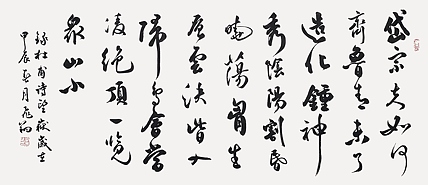 岱宗夫如何
齊魯青未了
造化鍾神
秀陰陽割昏
曉蕩胷生
層雲決眥入
歸鳥會當
凌絕頂一覽
眾山小
錄杜甫詩望嶽歲在
甲辰月翁